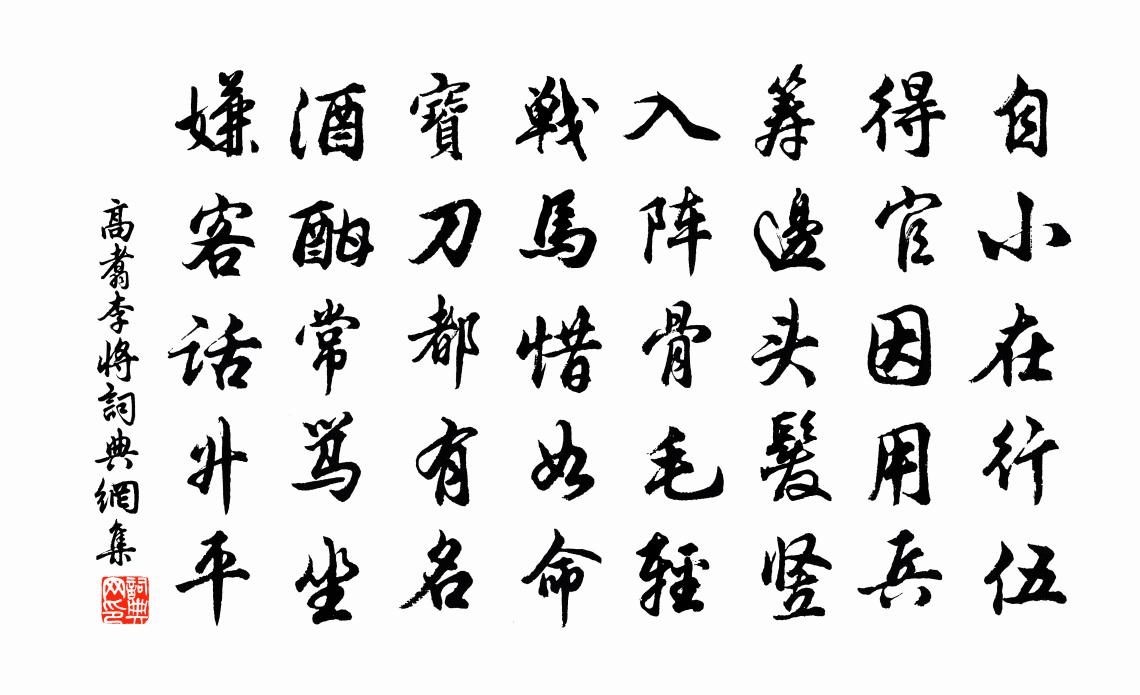 自小在行伍
得官因用兵
筹邊头髮竖
入阵骨毛輕
戦馬惜如命
寶刀都有名
酒酣常骂坐
嫌客话升平
高翥李将詞典網集
詞典网印